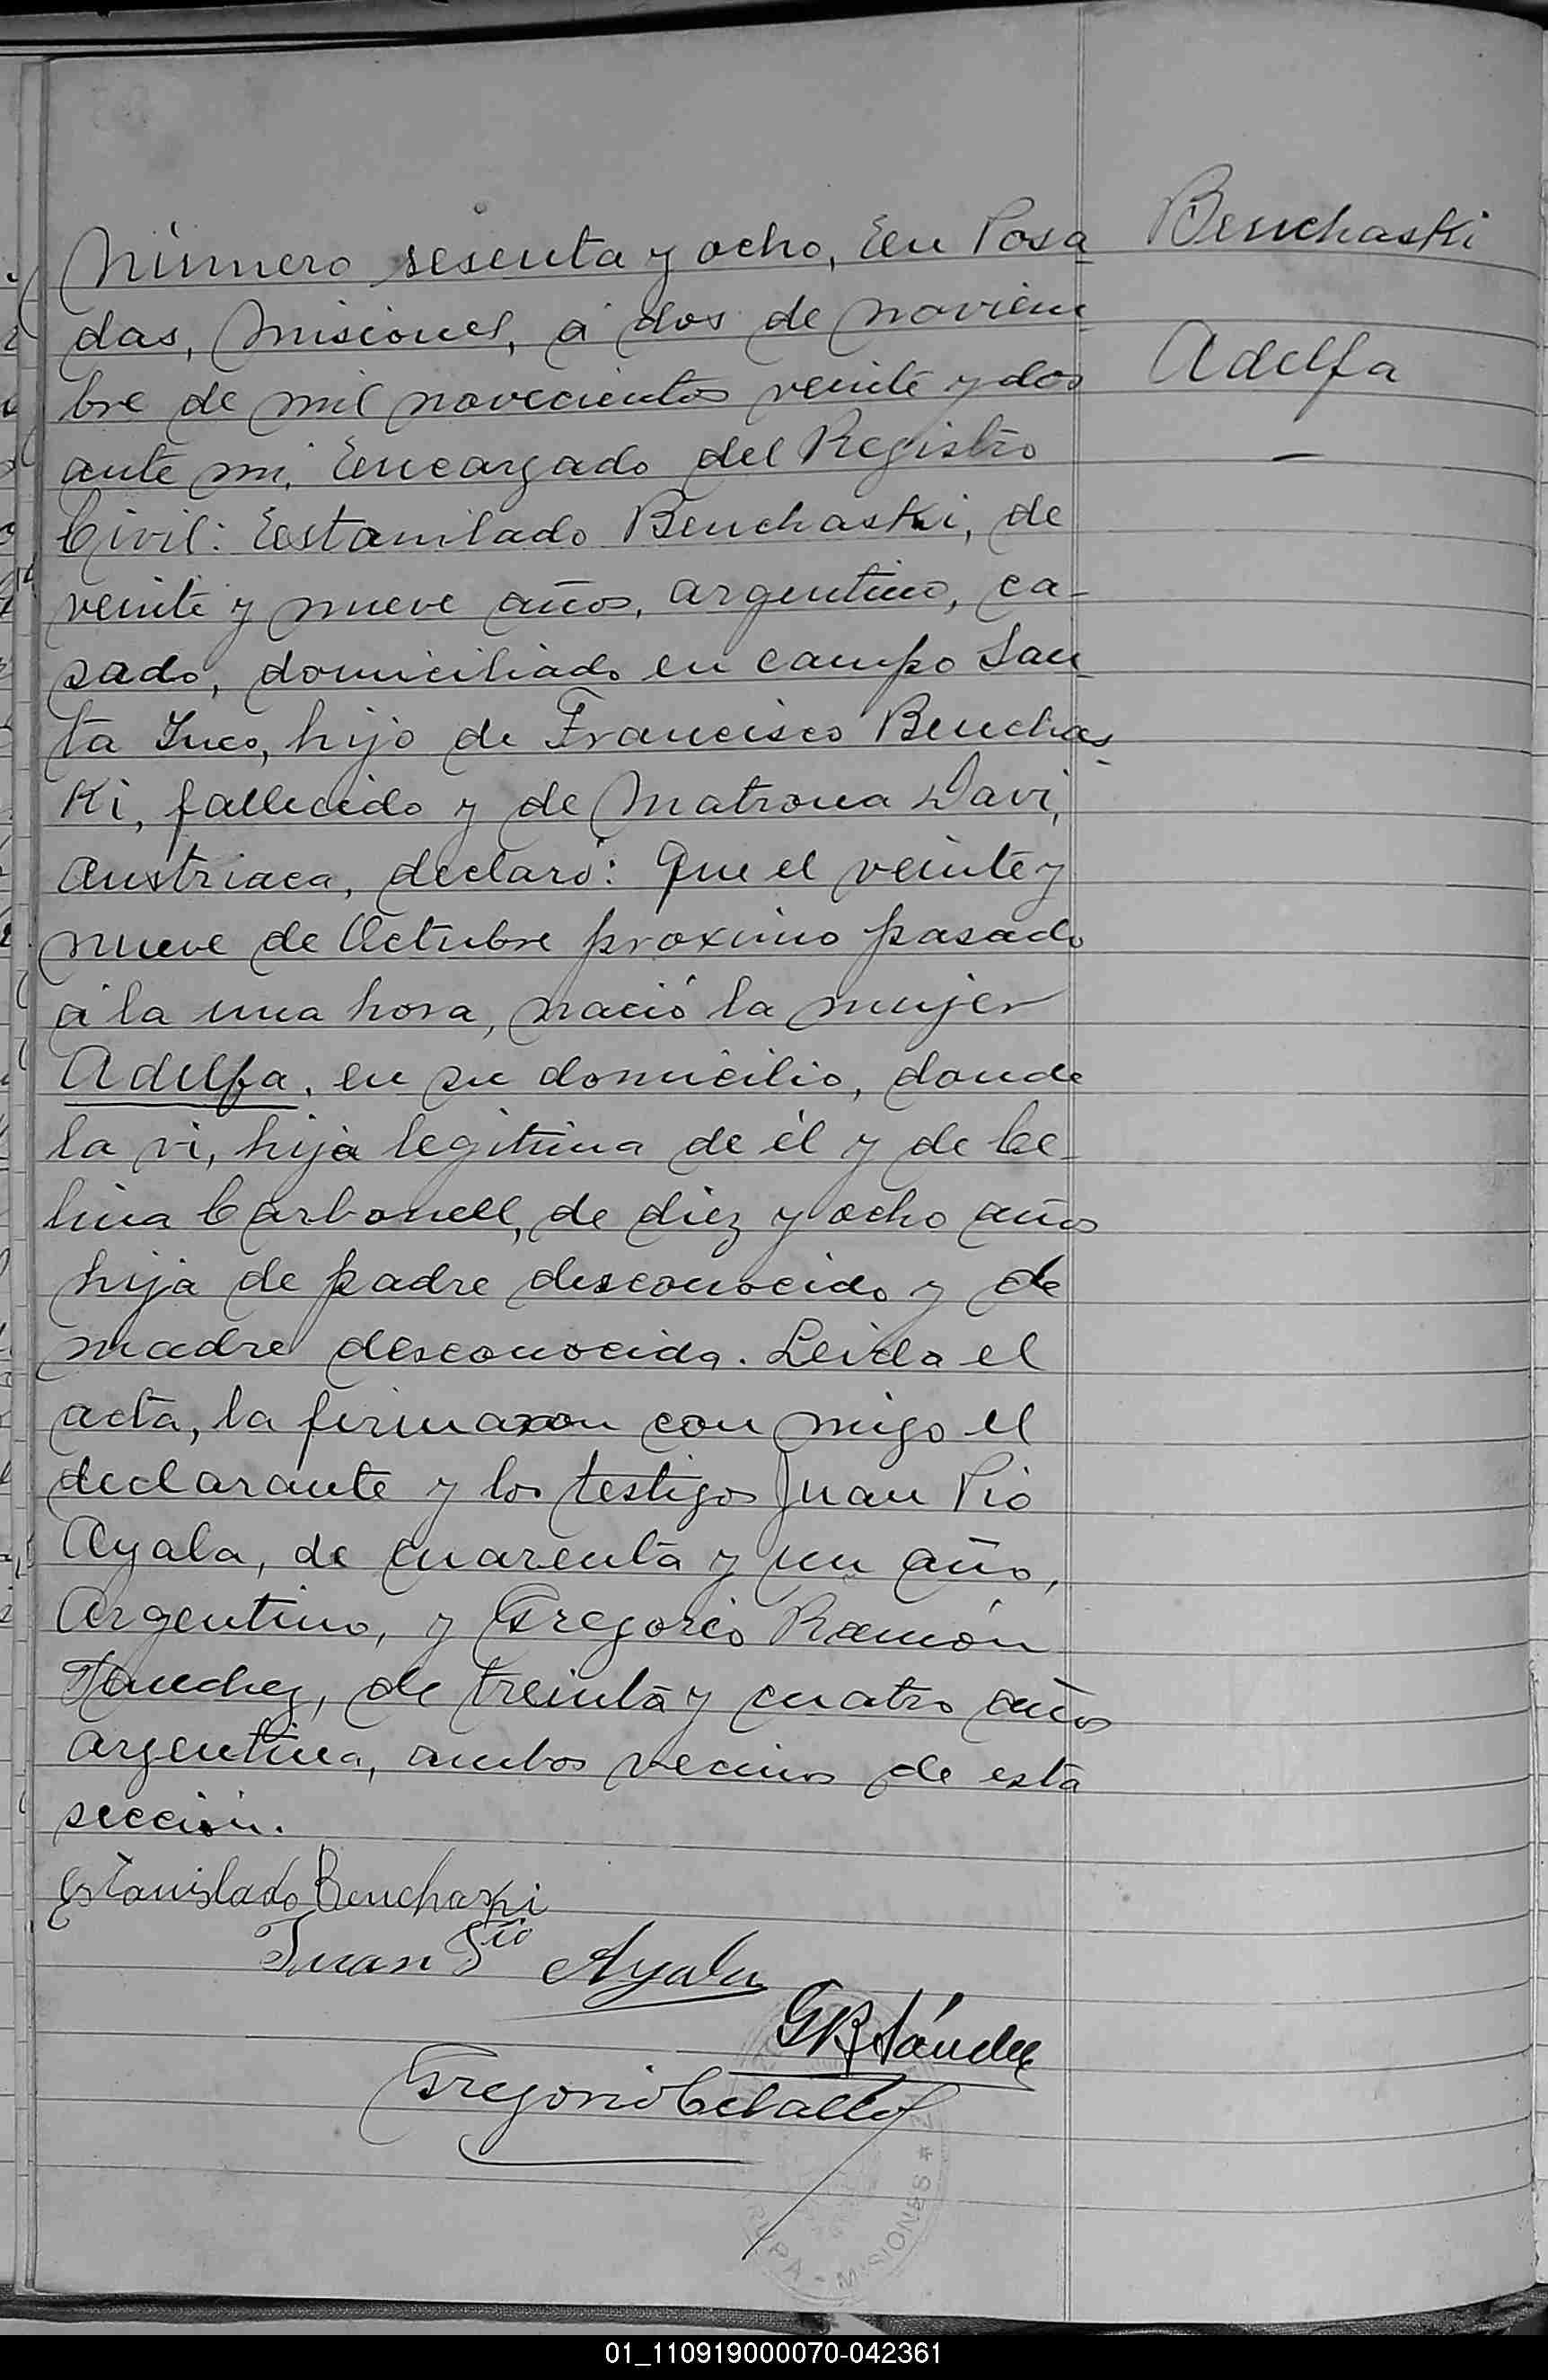 Benchaski
Adelfa
—
Número sesenta y ocho, En Posa
das, Misiones, á dos de noviem
bre de mil novecientos veinte y dos
ante mi, Encargado del Registro
Civil: Estanilado Benchaski, de
veinte y nueve años, argentino, ca-
sado, domiciliado en campo San
ta Ines, hijo de Francisco Benchas
ki, fallecido y de Matrona Davi,
Austriaca, declaró: Que el veinte y
nueve de Octubre proximo pasado
á la una hora, nació la mujer
Adelfa, en su domicilio, donde
la vi, hija legitima de él y de Ce-
lina Carbonell, de diez y ocho años
hija de padre desconocido y de
madre desconocida. Leida el
acta, la firmaron con migo el
declarante y los testigos Juan Pio
Ayala, de cuarenta y un año,
Argentino, y Gregorio Ramón
Sanchez, de treinta y cuatro años
argentina, ambos vecinos de esta
sección.
Estanislado Benchaski
Juan Pio Ayala
GRSánchez
Gregorio Ceballos
MISIONES
01_110919000070-042361